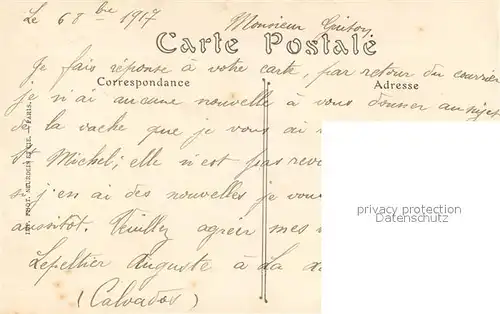 Le 6 8bre 1917
Monsieur
Carte Postale
Je fais réponse à votre carte, par retour du courrier
Correspondance
Adresse
je n'ai aucune nouvelle à vous donner au sujet
de la vache que je vous ai
St Michel; elle n'est pas
si j'en ai des nouvelles je
aussitot. Veuillez agréer mes
Lepeltier Auguste à La
(Calvados)
privacy protection
Datenschutz